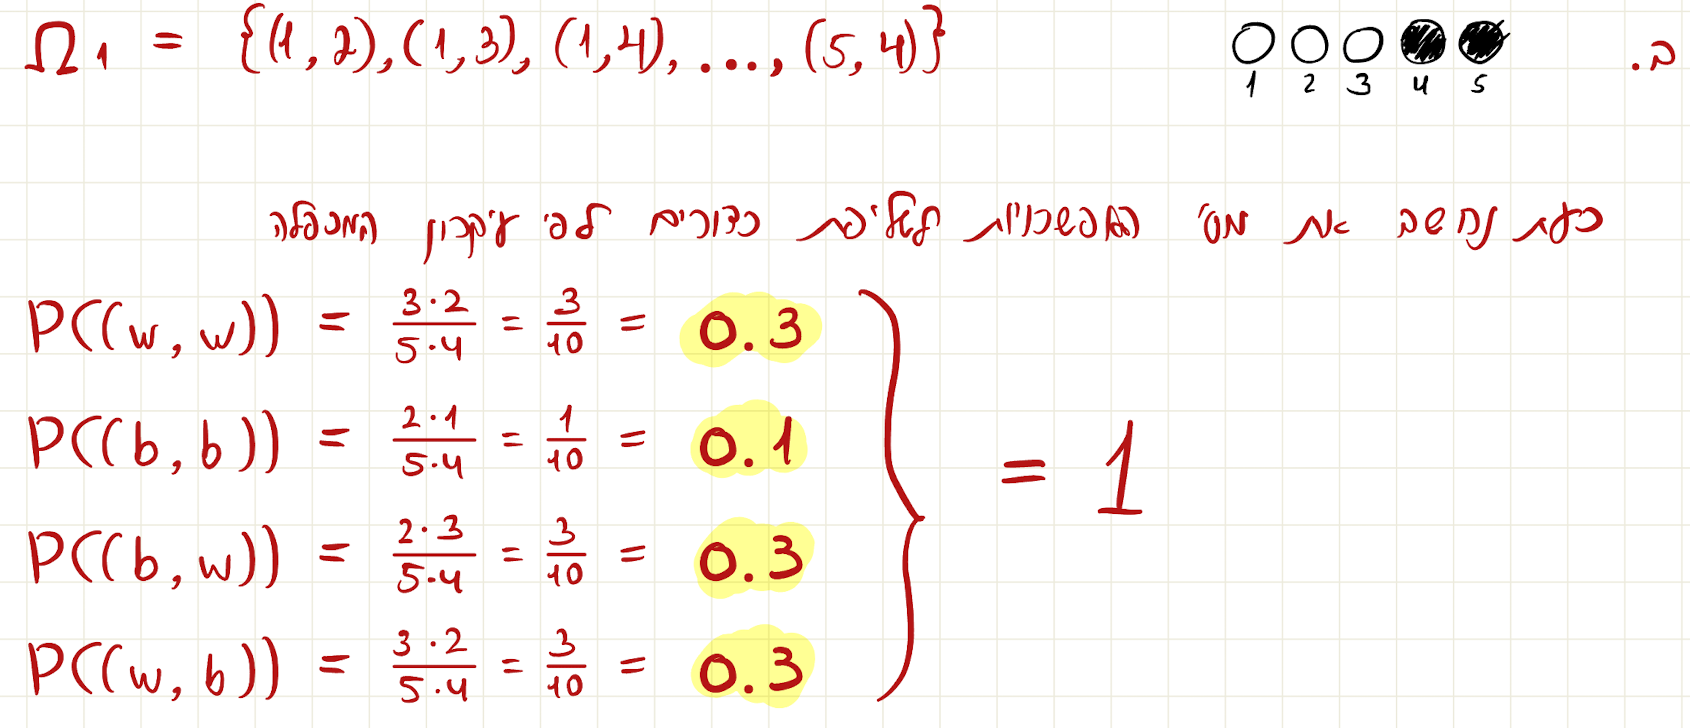 ב. Ω₁ = {(1,2),(1,3),(1,4),...,(5,4)}
1 2 3 4 5
כעת נחשב את מס' האפשרויות לשליפת כדורים לפי עיקרון המכפלה
P((w,w)) = 3·2/5·4 = 3/10 = 0.3
P((b,b)) = 2·1/5·4 = 1/10 = 0.1
P((b,w)) = 2·3/5·4 = 3/10 = 0.3
P((w,b)) = 3·2/5·4 = 3/10 = 0.3
} = 1